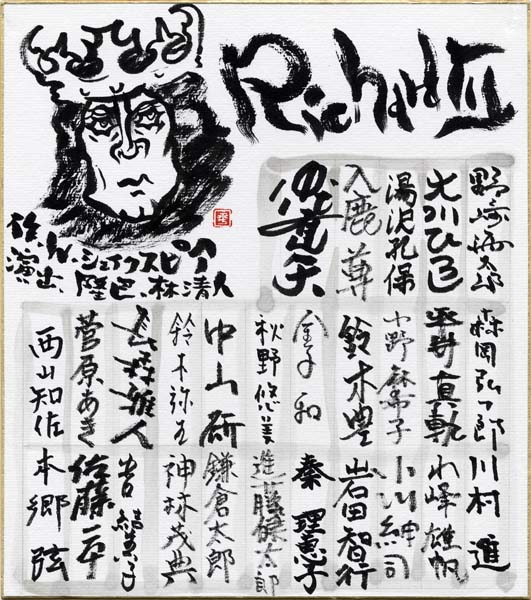 Richard III
作、W.シェイクスピア
演出、陸巴、林清人
大川ひろし
湯沢孔保
入鹿尊
森岡弘一郎
平井真軌
中野麻希子
鈴木豊
金子和
秋野悠美
中山研
鈴木弥生
長森雅人
菅原あき
西山知佐
川村進
小峰雄帆
小川紳司
岩田智行
秦理恵子
進藤健太郎
鎌倉太郎
神林茂典
佐藤二本
本郷弦